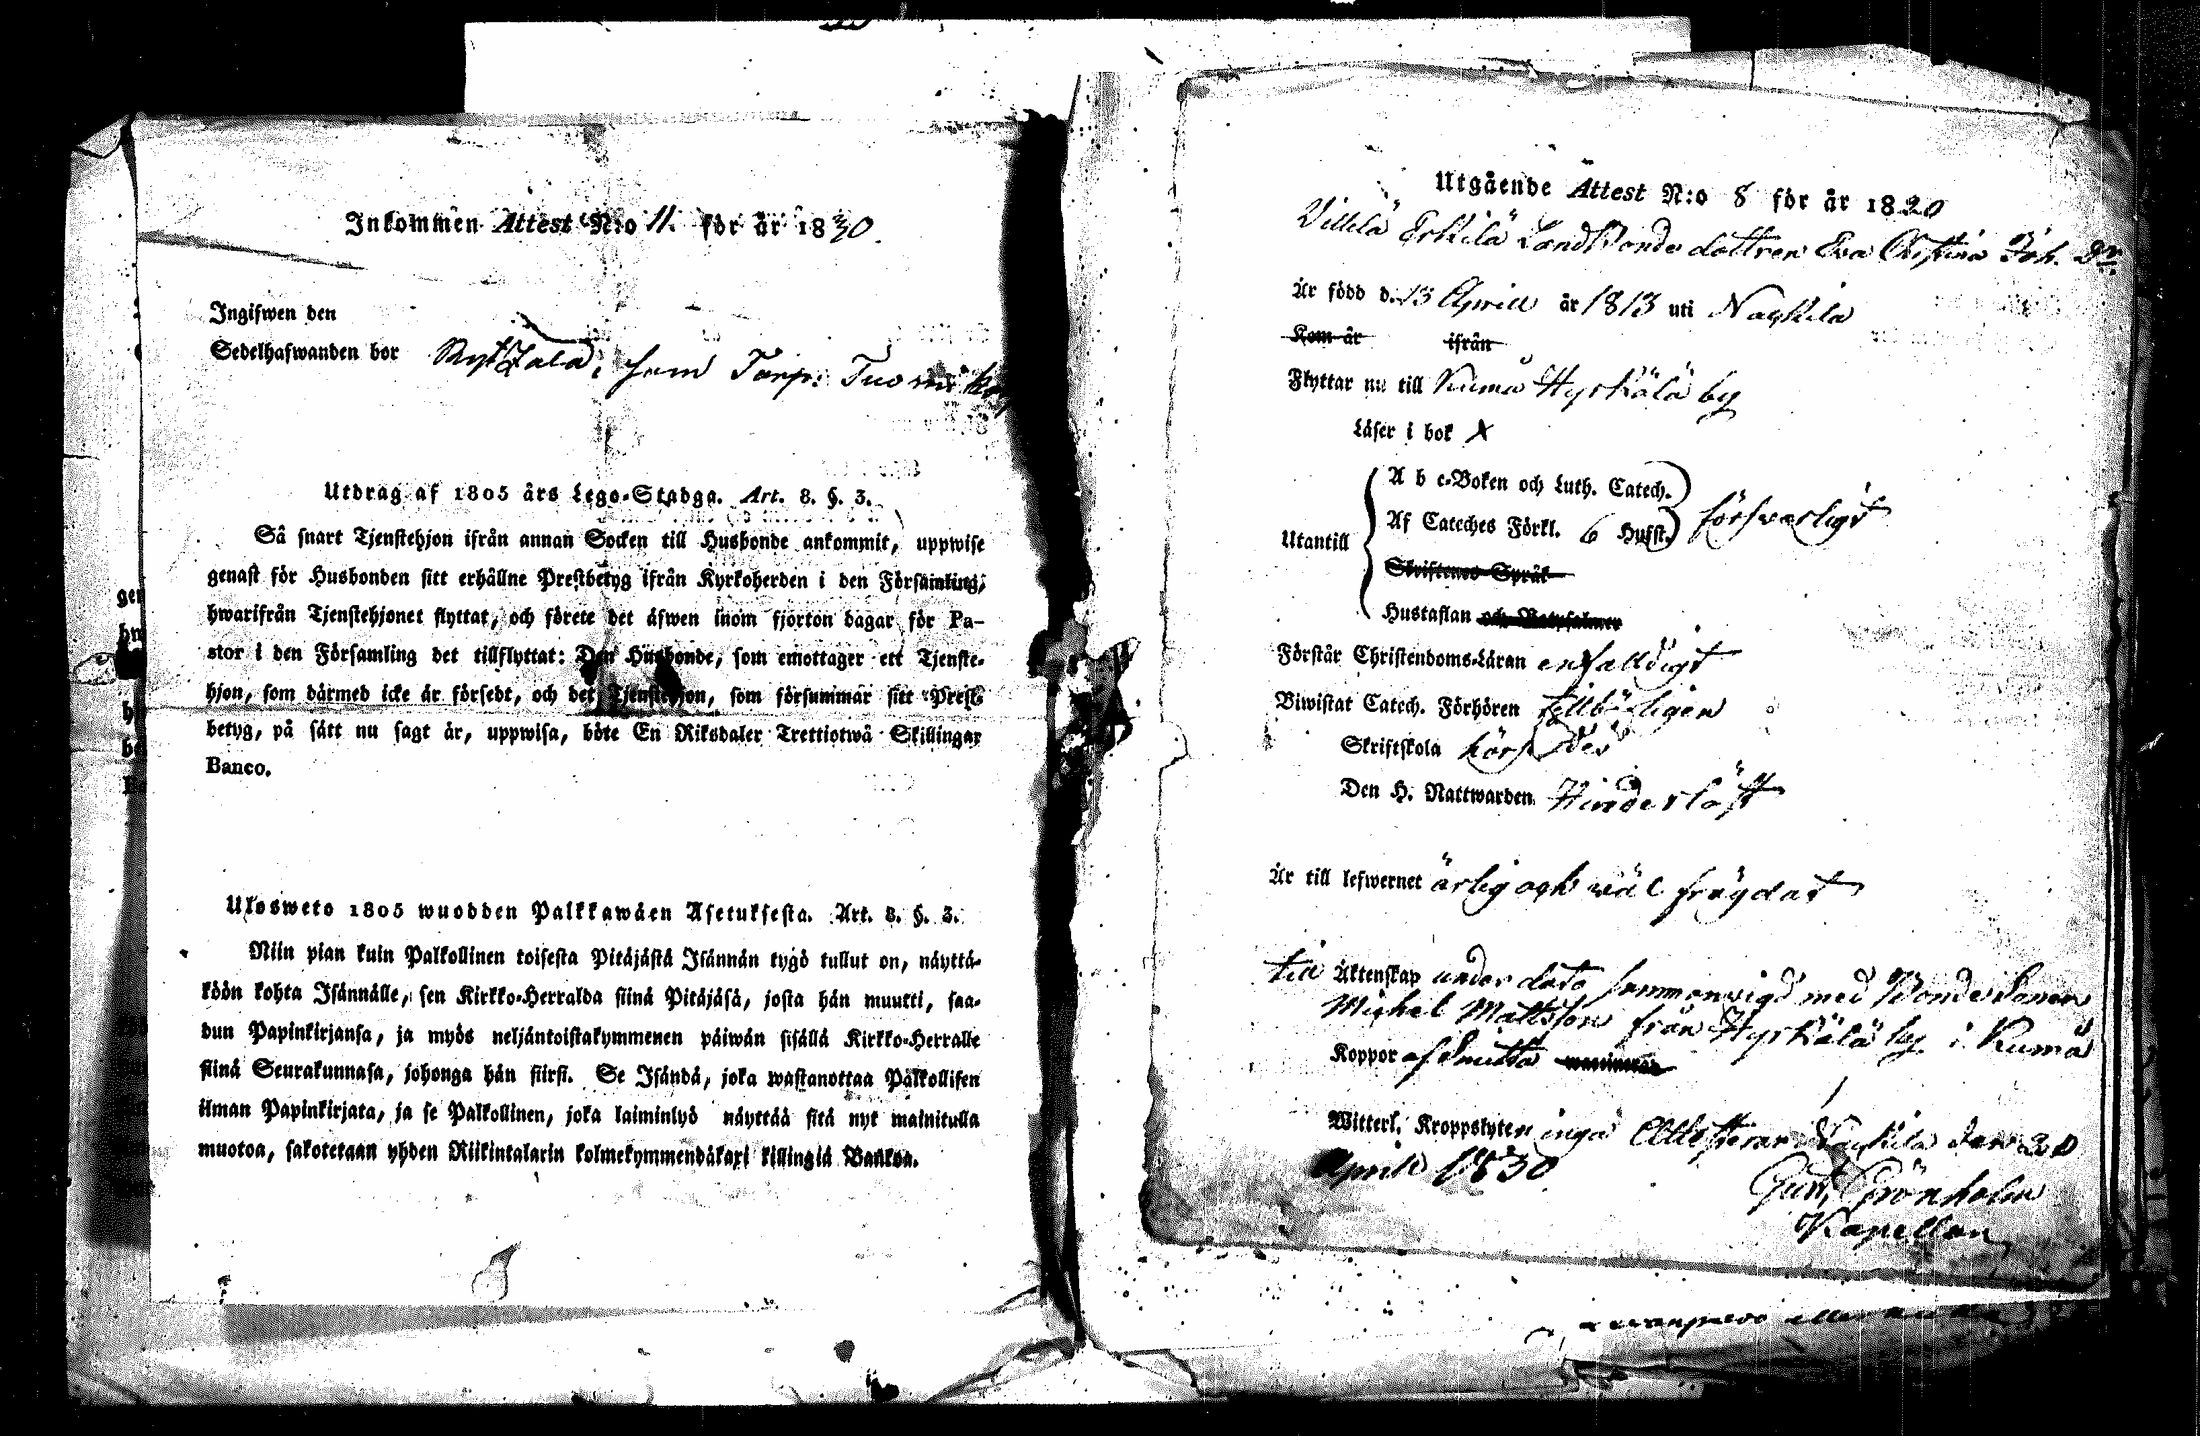 Inkommen Attest N:o 11. för år 1830.
Ingifwen den
Sedelhafwanden bor som Torp.
Utdrag af 1805 års Lego-Stadga. Art. 8. §. 3.
Så snart Tjenstehjon ifrån annan Socken till Husbonde ankommit, uppwise
genast för Husbonden sitt erhållne Prestbetyg ifrån Kyrkoherden i den Församling,
hwarifrån Tjenstehjonet flyttat, och förete det äfwen inom fjorton dagar för Pa-
stor i den Församling det tillflyttat: Den Husbonde, som emottager ett Tjenste-
hjon, som därmed icke är försedt, och det Tjenstehjon, som försummar sitt Prest-
betyg, på sätt nu sagt är, uppwisa, böte En Riksdaler Trettiotwå Skillingar
Banco.
Ulosweto 1805 wuodden Palkkawäen Asetuksesta. Art. 8. §. 3.
Niin pian kuin Palkollinen toisesta Pitäjästä Isännän tygö tullut on, näyttä-
köön kohta Isännälle, sen Kirkko-Herralda siinä Pitäjäsä, josta hän muutti, saa-
dun Papinkirjansa, ja myös neljäntoistakymmenen päiwän sisällä Kirkko-Herralle
siinä Seurakunnasa, johonga hän siirsi. Se Isändä, joka wastanottaa Palkollisen
ilman Papinkirjata, ja se Palkollinen, joka laiminlyö näyttää sitä nyt mainitulla
muotoa, sakotetaan yhden Riikintalarin kolmekymmendäkaxi killingiä Bankoa.
Utgående Attest N:o 8 för år 1830
Villilä Erkilä Landbonde dottren Eva Christina Joh. Dr.
Är född d. 13 Aprill år 1813 uti Nackila
Kom år ifrån
Flyttar nu till Kumå Hyrkälä by
Läser i bok x
Utantill
A b c-Boken och Luth. Catech.
Af Cateches Förkl. 6 Hufst. försvarligt
Skriftenes Språk
Hustaflan och
Förstår Christendoms-Läran enfalldigt
Biwistat Catech. Förhören tillbörligen
Skriftskola
Den H. Nattwarden Hinderlöst
Är till lefwernet ärlig och väl frägdat
till Äktenskap under dato sammanvigd med Bonde Sonen
Michel Mattsson från Hyrkälä by i Kumå
Koppor af Smitta
Witterl. Kroppslyten inga Attesterar Nackila den 20
April 1830
Gust. Grönholm
Kapellan